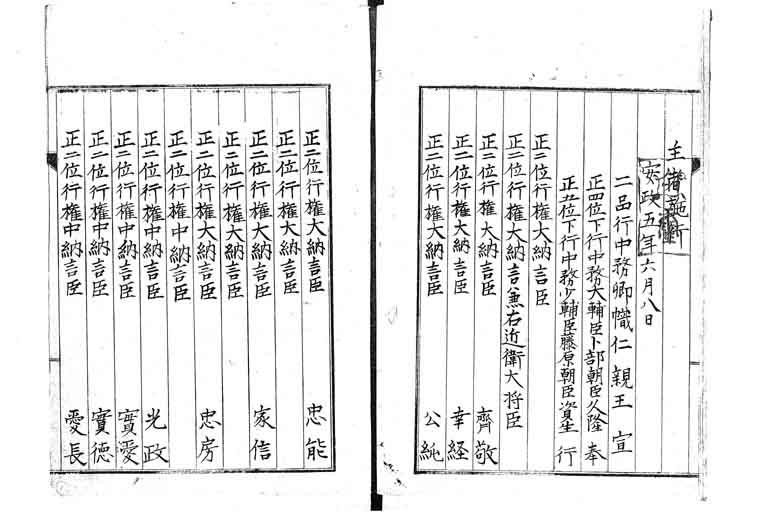 主者施行
安政五年六月八日
二品行中務卿幟仁親王 宣
正四位下行中務大輔臣卜部朝臣久隆 奉
正五位下行中務少輔臣藤原朝臣資生 行
正二位行權大納言臣
正二位行權大納言兼右近衛大将臣
正二位行權大納言臣 齊敬
正二位行權大納言臣 幸経
正二位行權大納言臣 公純
正二位行權大納言臣 忠能
正二位行權大納言臣
正二位行權大納言臣 家信
正二位行權大納言臣
正二位行權大納言臣 忠房
正二位行權中納言臣
正二位行權中納言臣 光政
正二位行權中納言臣 實愛
正二位行權中納言臣 實德
正二位行權中納言臣 愛長